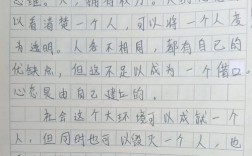 以看清楚一个人，可以将一个人看
为透明。人各不相同，都有自己的
优缺点，但这不足以成为一个借口，
心态是由自己建立的。
社会这个大环境可以成就一个
人，但同时也可以毁灭一个人，也